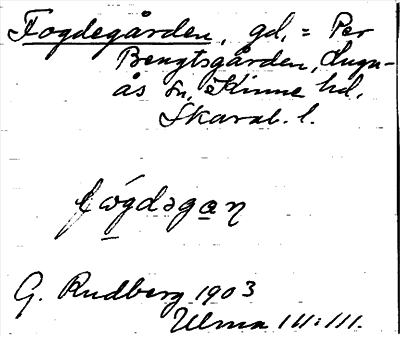 Fogdegården, gd, = Per
Bengtsgården, Lugn-
ås sn, Kinne hd,
Skarab. l.
fωgdəgaη
G. Rudberg 1903
Ulma 111:111.